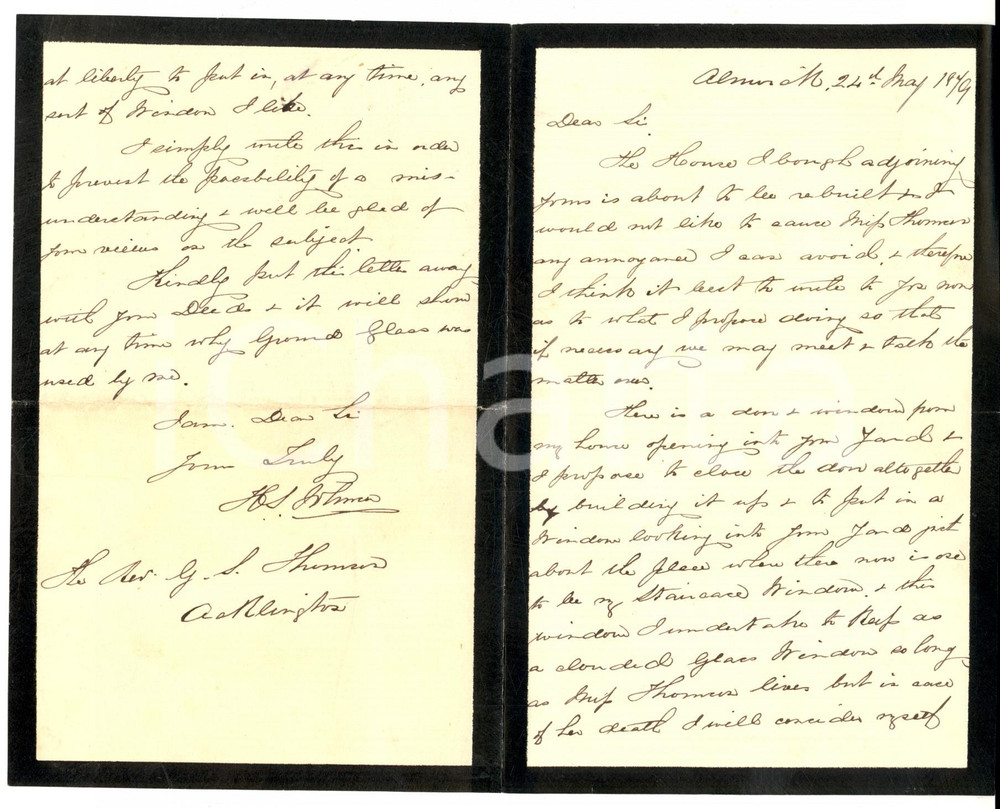 Alnwick, 24th May 1879
Dear Sir.
The House I bough adjoining
yours is about to be rebuilt & I
would not like to cause Miss Thomson
any annoyance I can avoid & therefore
I think it best to write to you now
as to what I propose doing so that
if necessary we may meet & talk the
matter over.
There is a door & window from
my house opening into your Yard &
I propose to close the door altogether
by building it up & to put in a
Window looking into your Yard just
about the place where there now is one
to be my Staircase Window, & this
window I undertake to Keep as
a clouded Glass Window so long
as Miss Thomson lives but in case
of her death I will consider myself
at liberty to put in, at any time, any
sort of Window I like.
I simply write this in order
to prevent the possibility of a mis-
understanding & will be glad of
your views on the subject.
Kindly put this letter away
with your Deeds & it will show
at any time why Ground Glass was
used by me.
I am. Dear Sir
Yours Truly
H. S.
The Rev. G. S. Thomson
Acklington